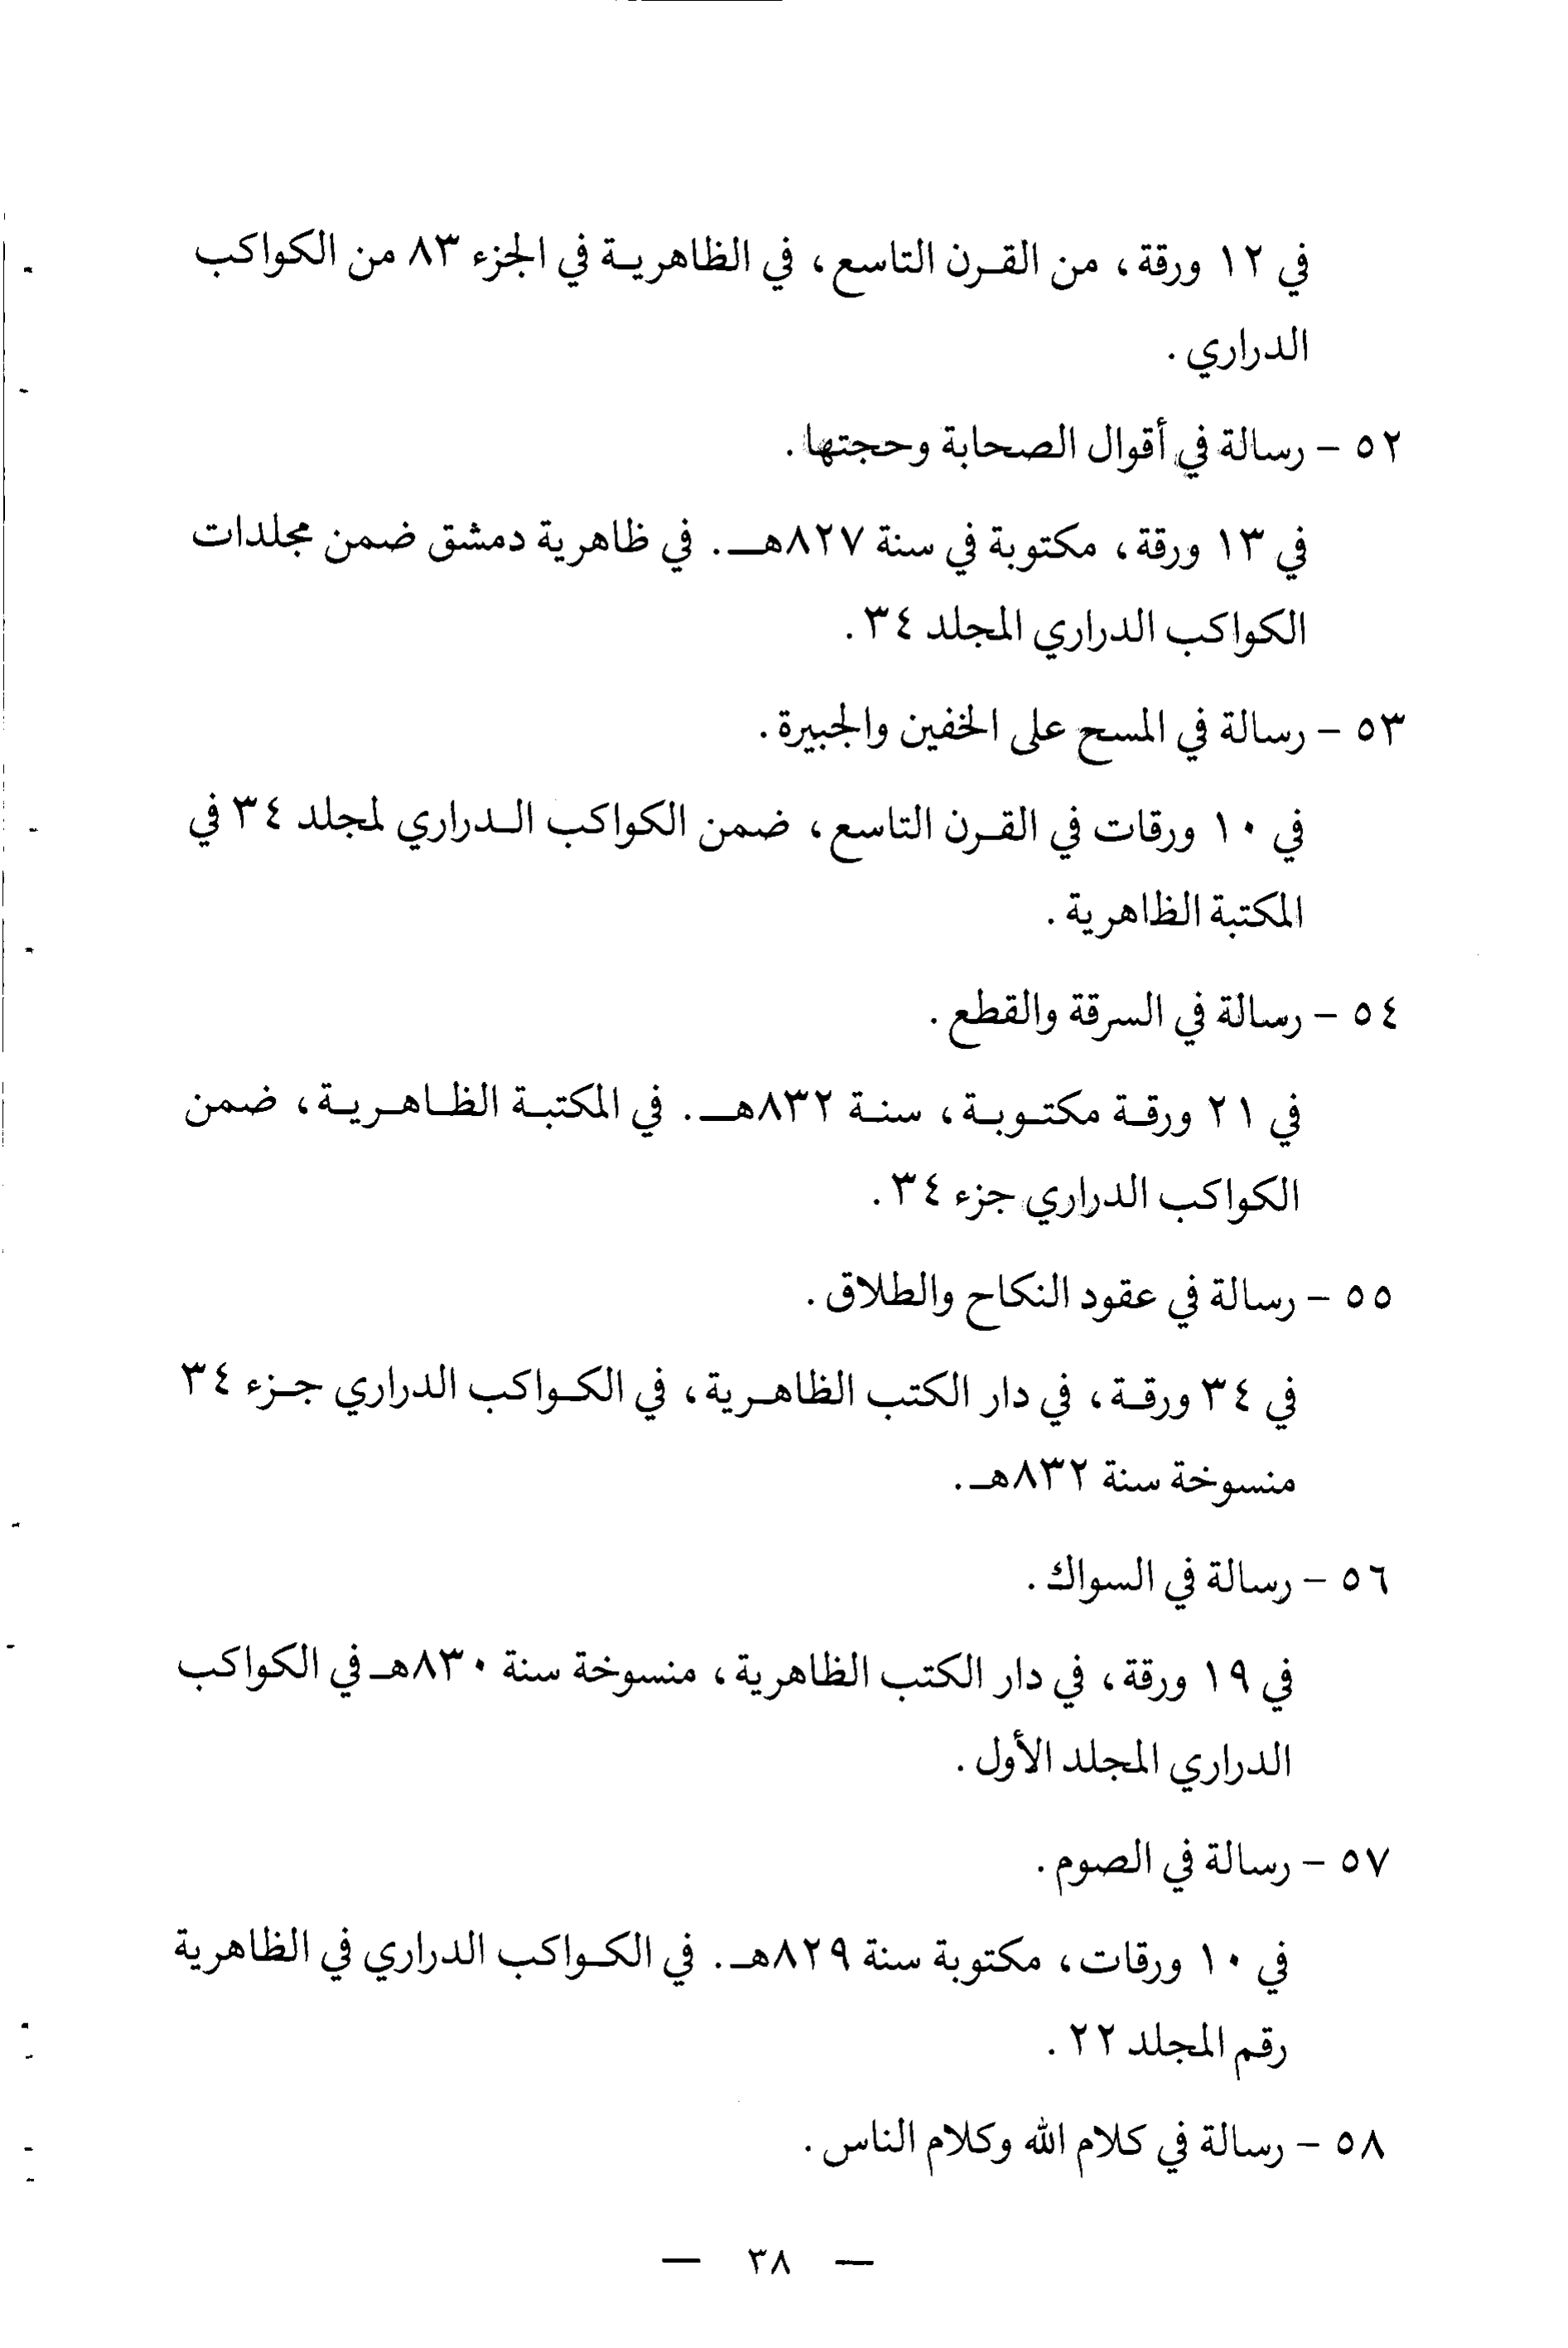 في ١٢ ورقة، من القرن التاسع، في الظاهرية في الجزء ٨٣ من الكواكب
الدراري.
٥٢ - رسالة في أقوال الصحابة وحجتها.
في ١٣ ورقة، مكتوبة في سنة ٨٢٧هـ. في ظاهرية دمشق ضمن مجلدات
الكواكب الدراري المجلد ٣٤.
٥٣ - رسالة في المسح على الخفين والجبيرة.
في ١٠ ورقات في القرن التاسع، ضمن الكواكب الدراري لمجلد ٣٤ في
المكتبة الظاهرية.
٥٤ - رسالة في السرقة والقطع.
في ٢١ ورقة مكتوبة، سنة ٨٣٢هـ. في المكتبة الظاهرية، ضمن
الكواكب الدراري جزء ٣٤.
٥٥ - رسالة في عقود النكاح والطلاق.
في ٣٤ ورقة، في دار الكتب الظاهرية، في الكواكب الدراري جزء ٣٤
منسوخة سنة ٨٣٢هـ.
٥٦ - رسالة في السواك.
في ١٩ ورقة، في دار الكتب الظاهرية، منسوخة سنة ٨٣٠هـ في الكواكب
الدراري المجلد الأول.
٥٧ - رسالة في الصوم.
في ١٠ ورقات، مكتوبة سنة ٨٢٩هـ. في الكواكب الدراري في الظاهرية
رقم المجلد ٢٢.
٥٨ - رسالة في كلام الله وكلام الناس.
— ٣٨ —